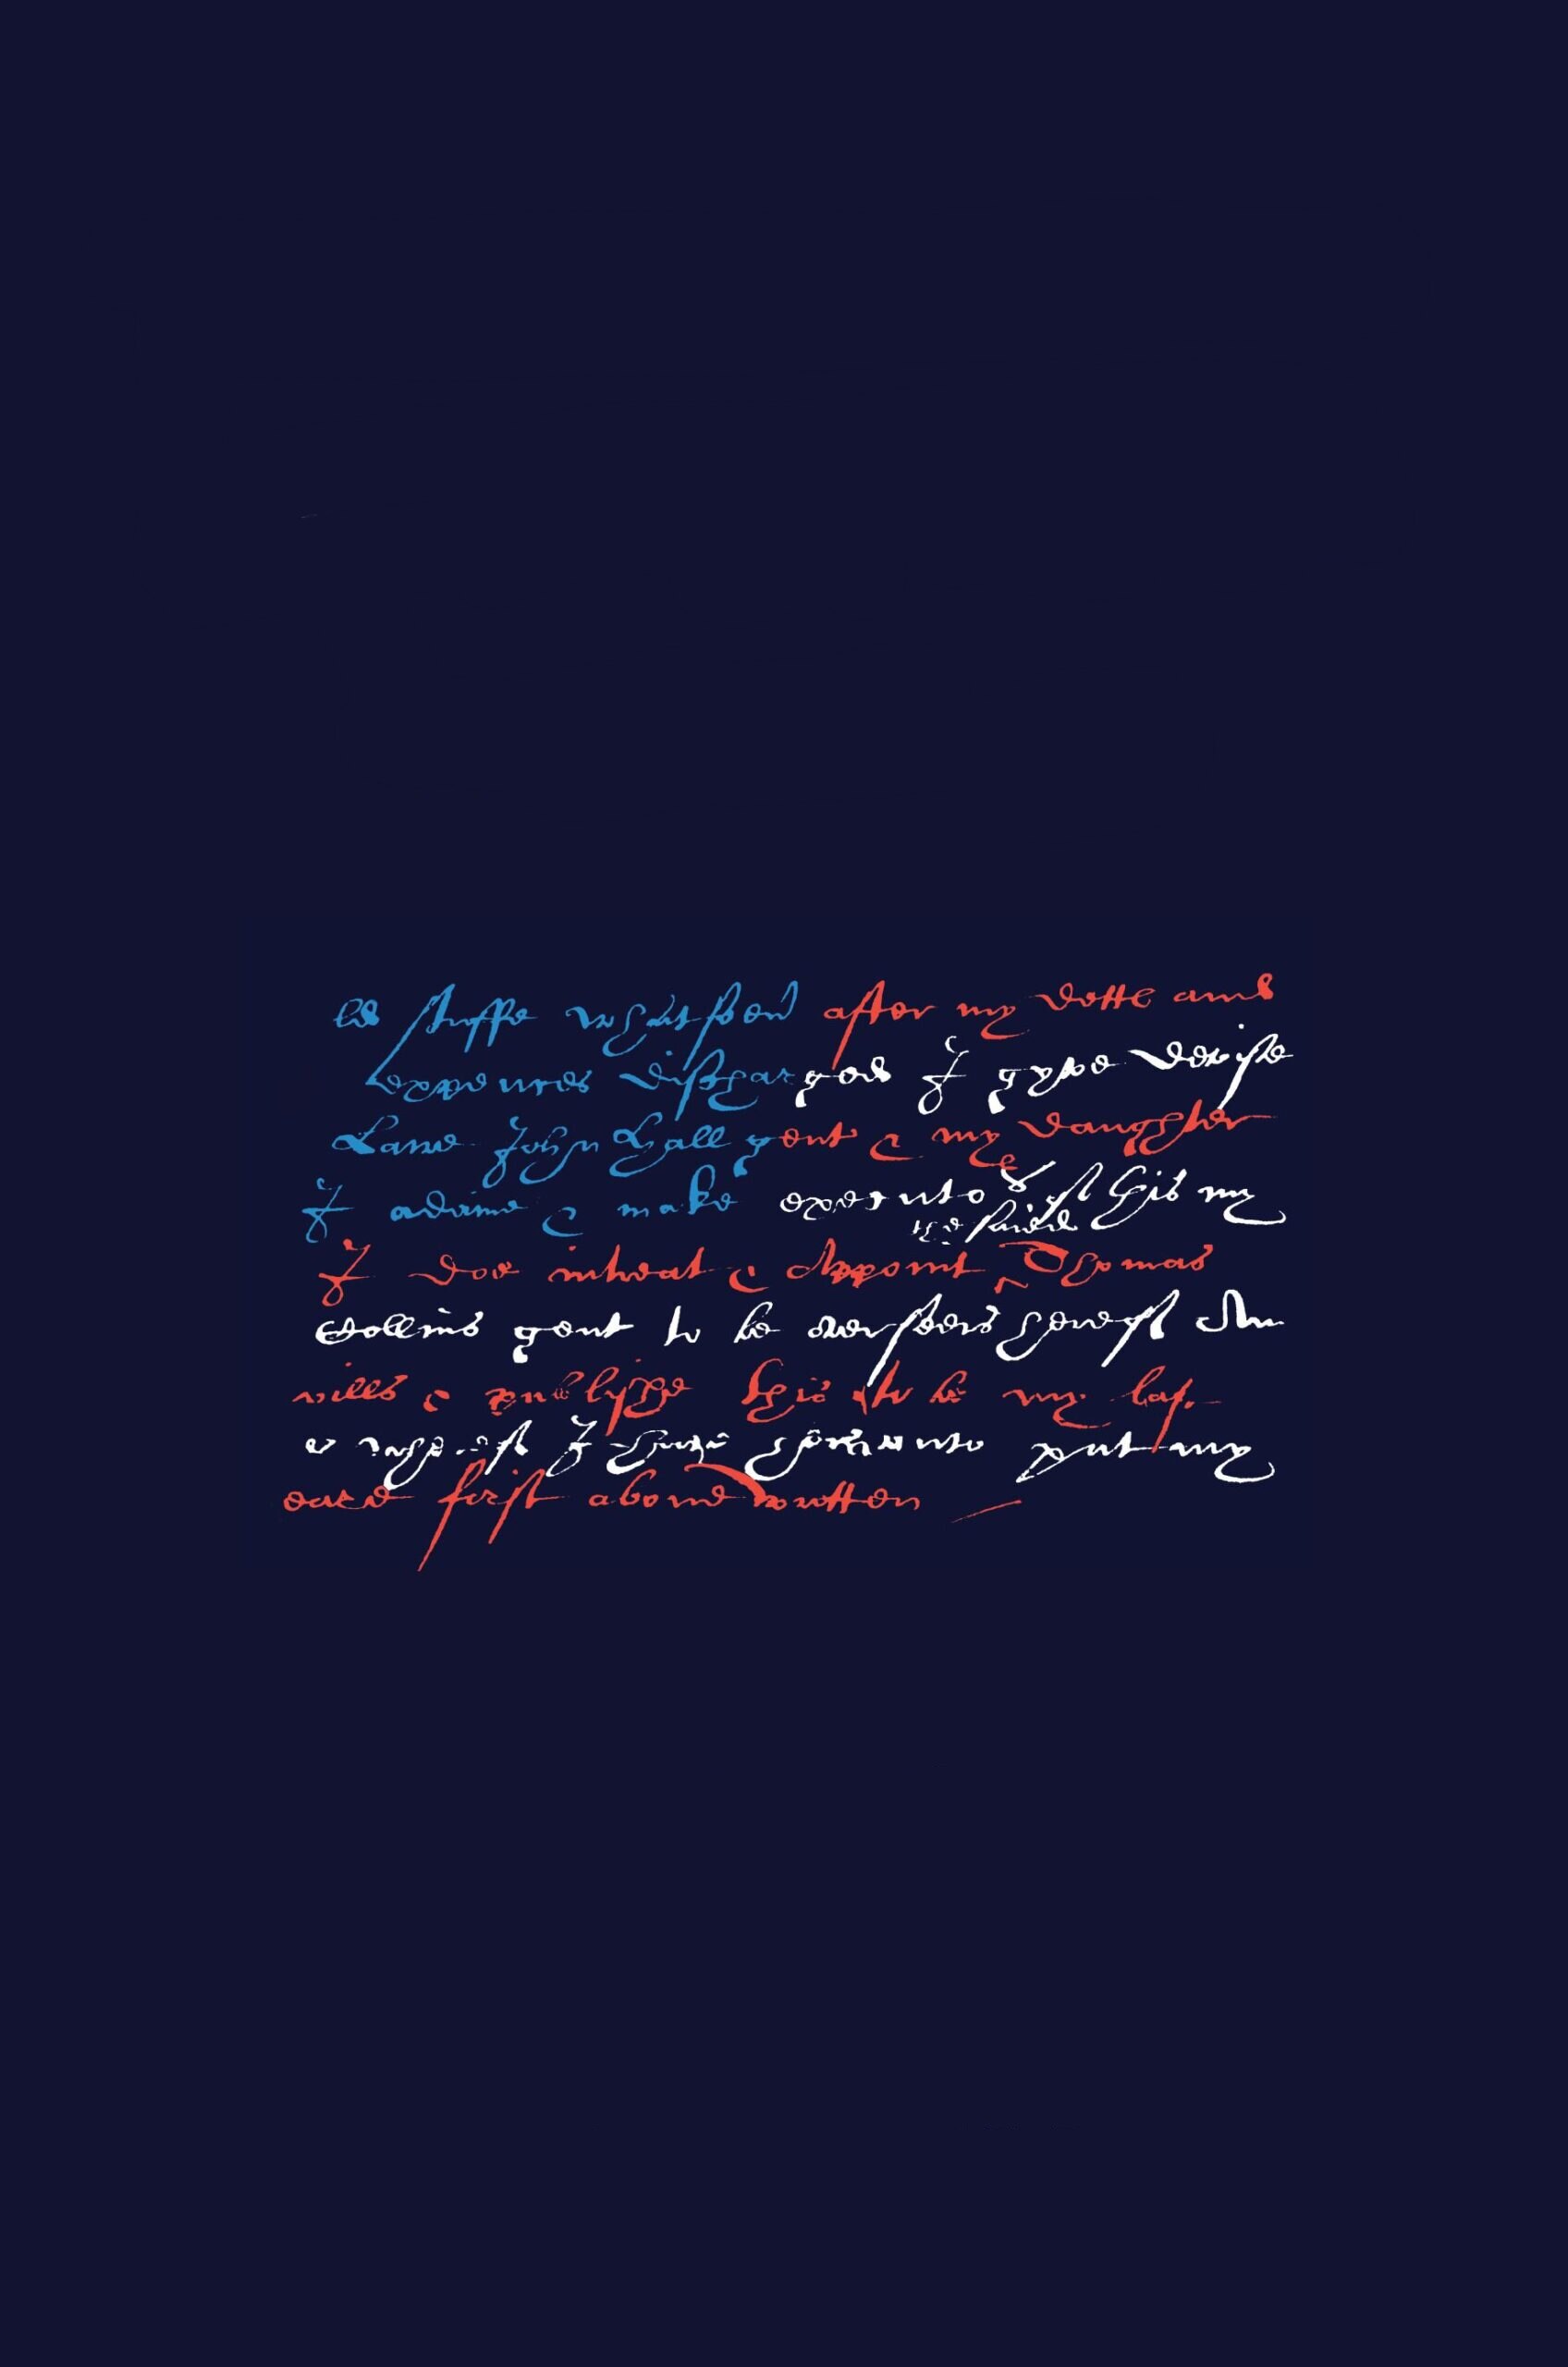 stuffe after my dette and
expences discharged I gyve devise
Lawe John Hall gent & my daughter
I ordaine & make executours of this my
the saied
I doe intreat & Appoint Thomas
Collins gent to be overseers hereof An
wills & publishe this to be my last
whereof I have hereunto put my
yeare first above written